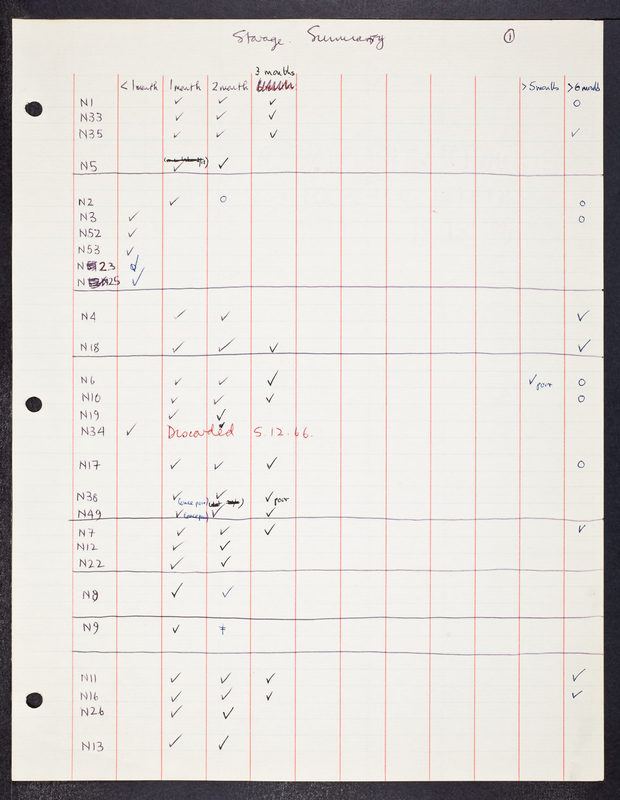 Storage. Summary ①
3 months
< 1 month 1 month 2 month > 5 months > 6 months
N1 ✓ ✓ ✓ O
N33 ✓ ✓ ✓
N35 ✓ ✓ ✓ ✓
N5 ✓ ✓
N2 ✓ O O
N3 ✓ O
N52 ✓
N53 ✓
N 23 ✓
N 25 ✓
N4 ✓ ✓ ✓
N18 ✓ ✓ ✓ ✓
N6 ✓ ✓ ✓ ✓ poor O
N10 ✓ ✓ ✓ O
N19 ✓ ✓
N34 ✓ Discarded 5.12.66.
N17 ✓ ✓ ✓ O
N38 ✓ (once poor) ✓ ✓ poor
N49 ✓ ✓ ✓
N7 ✓ ✓ ✓ ✓
N12 ✓ ✓
N22 ✓ ✓
N8 ✓ ✓
N9 ✓
N11 ✓ ✓ ✓ ✓
N16 ✓ ✓ ✓ ✓
N26 ✓ ✓
N13 ✓ ✓